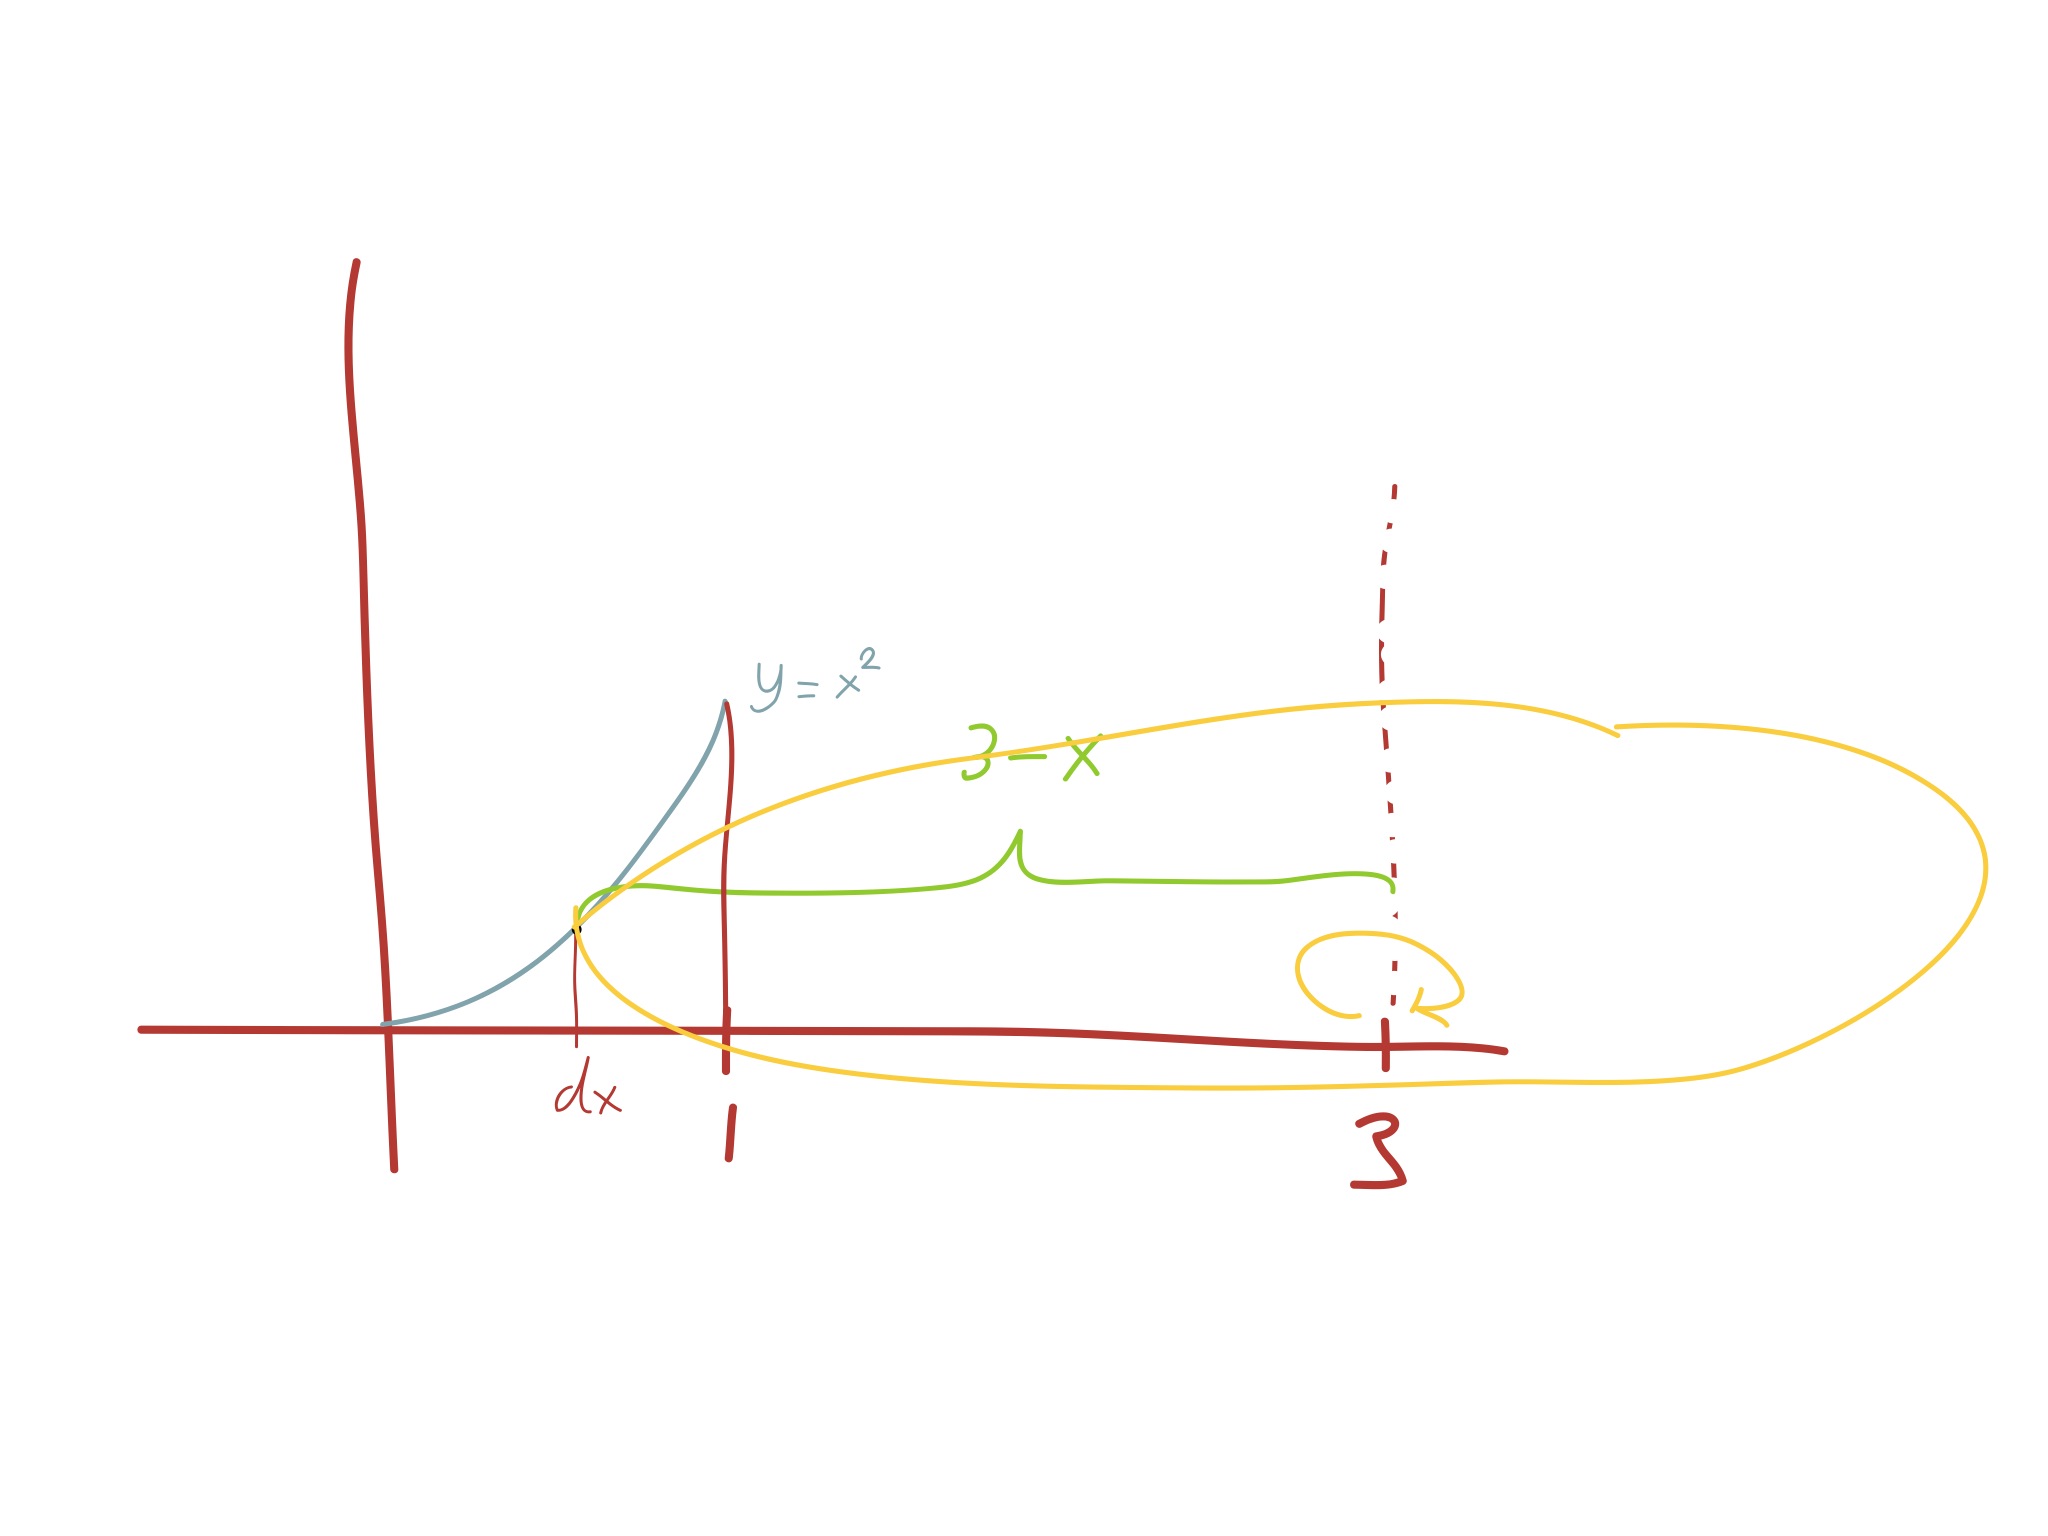 y = x²
3 - x
dx
1
3